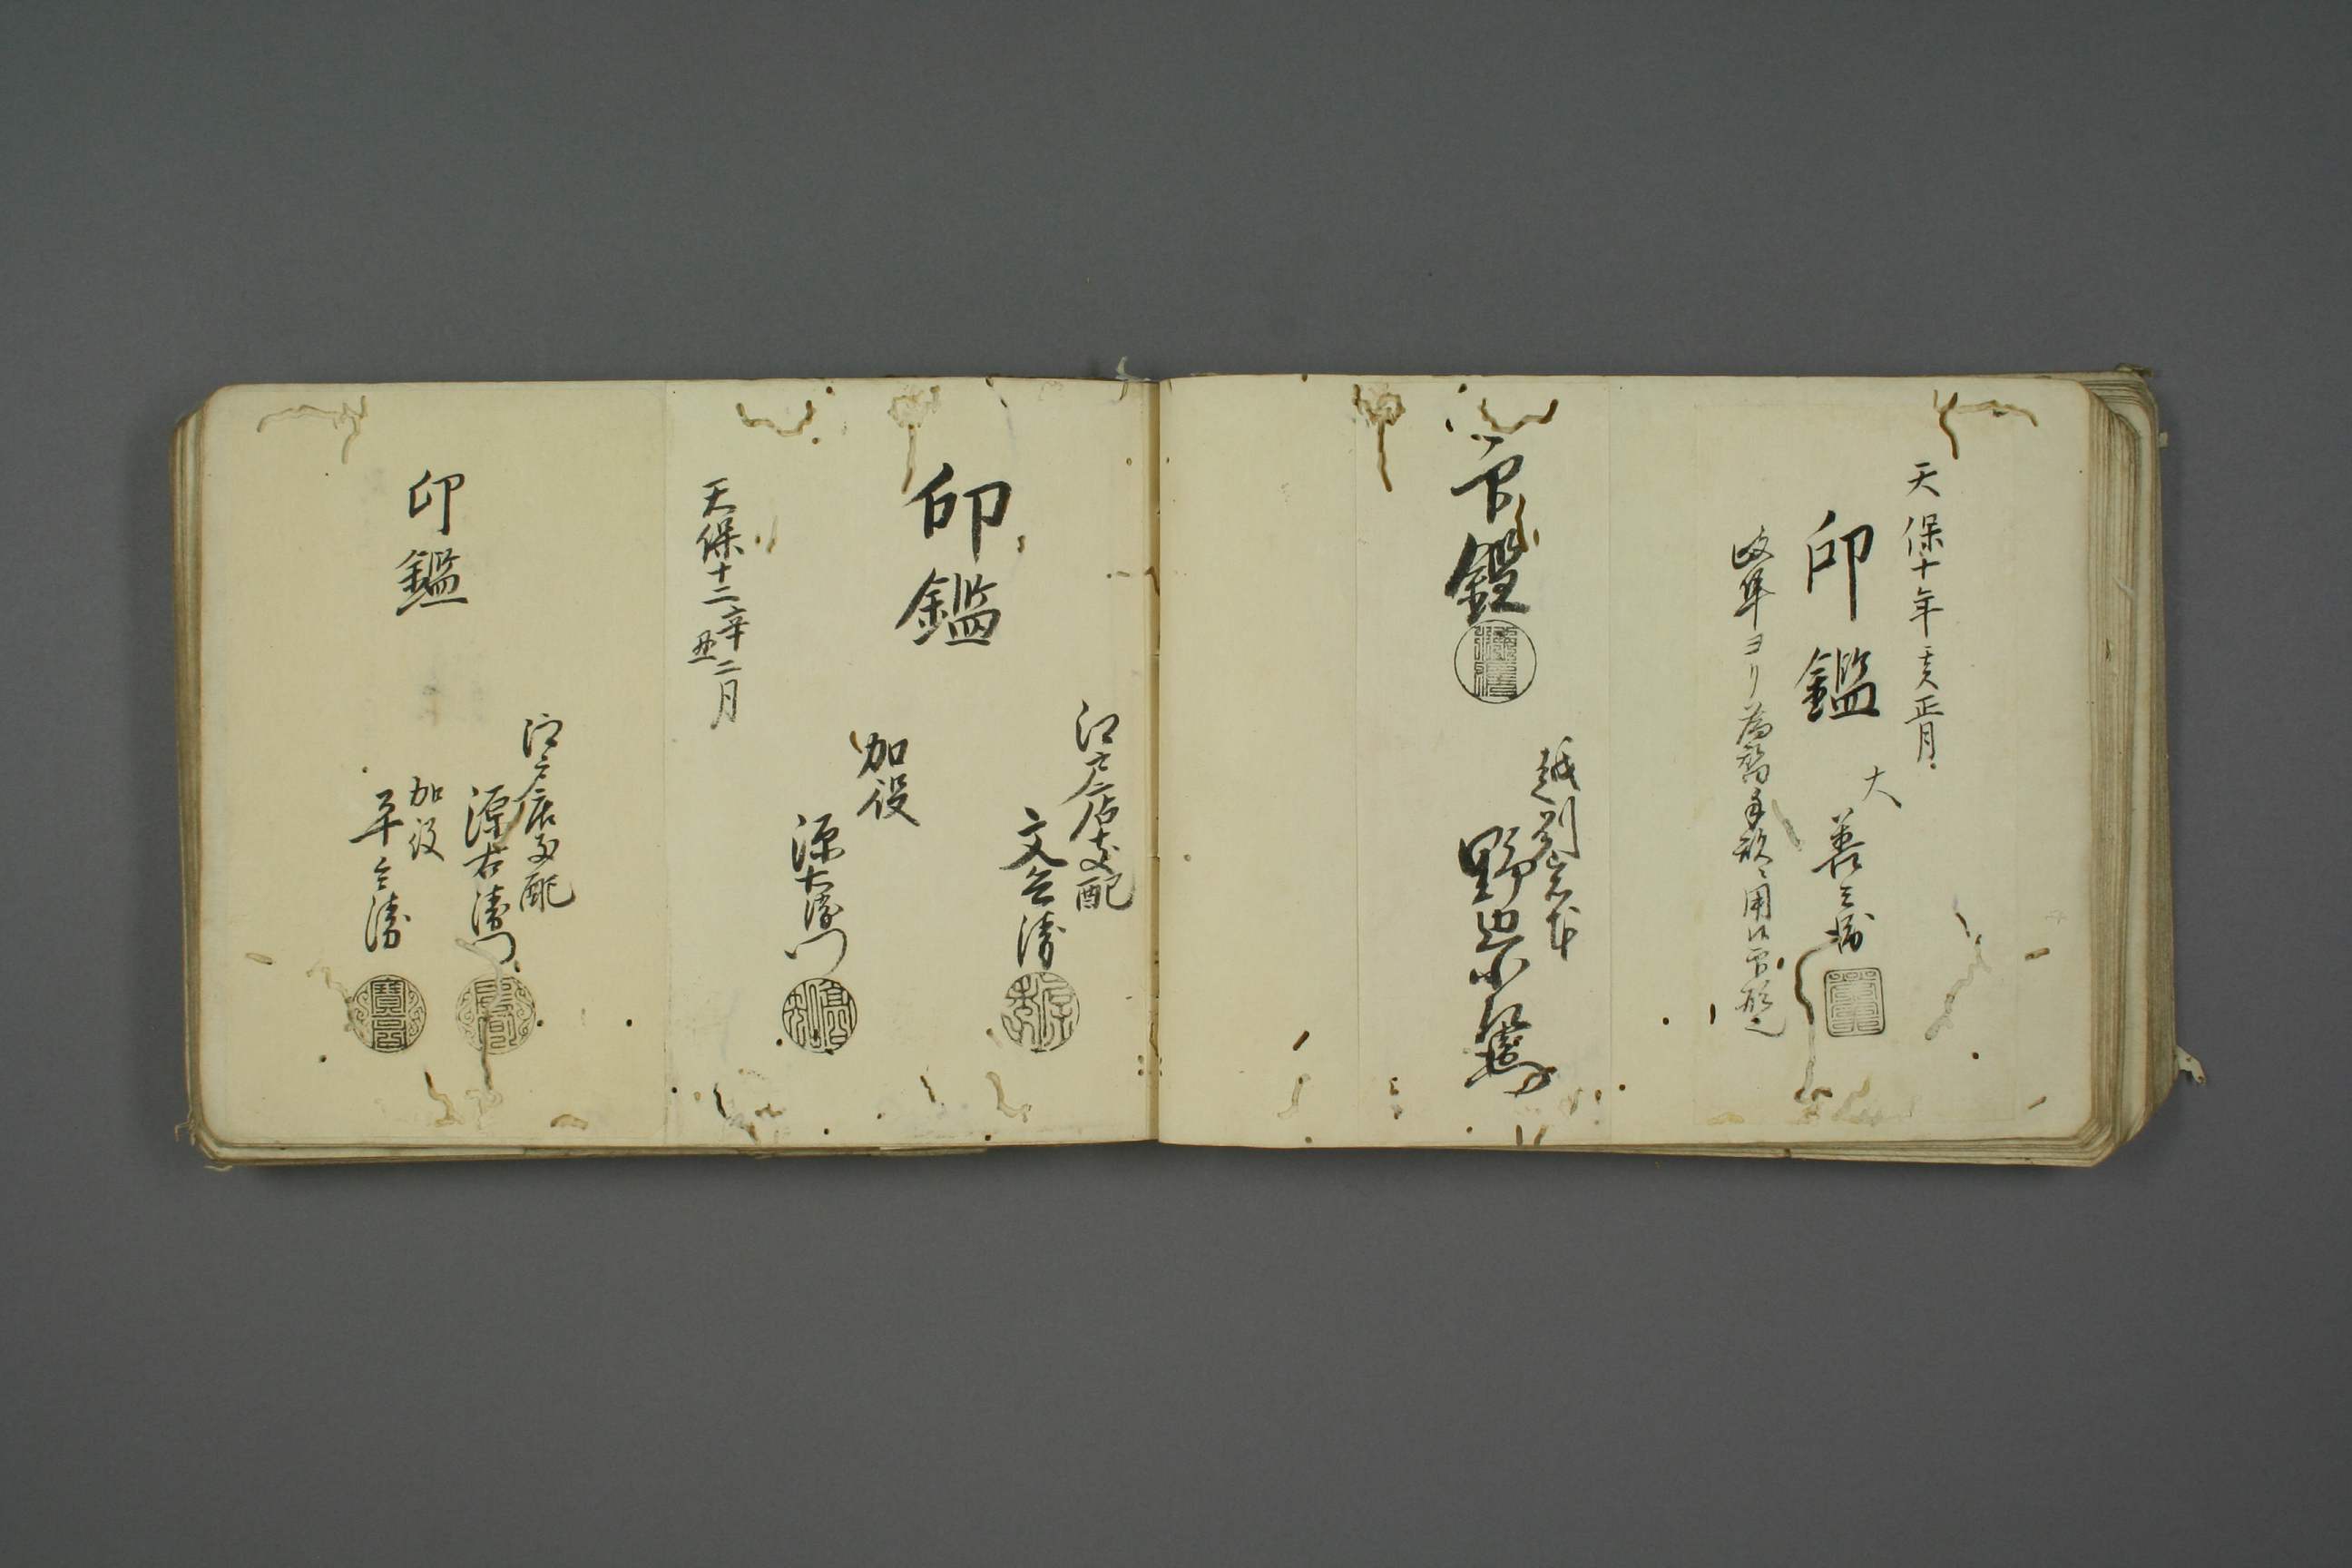 天保十年亥正月
印鑑
大
善三郎
岐阜ヨリ為替手形ニ用候印形也
印鑑
越前宮本
印鑑
江戸店支配
文兵衛
加役
源右衛門
天保十二辛丑二月
印鑑
江戸店支配
源右衛門
加役
平兵衛